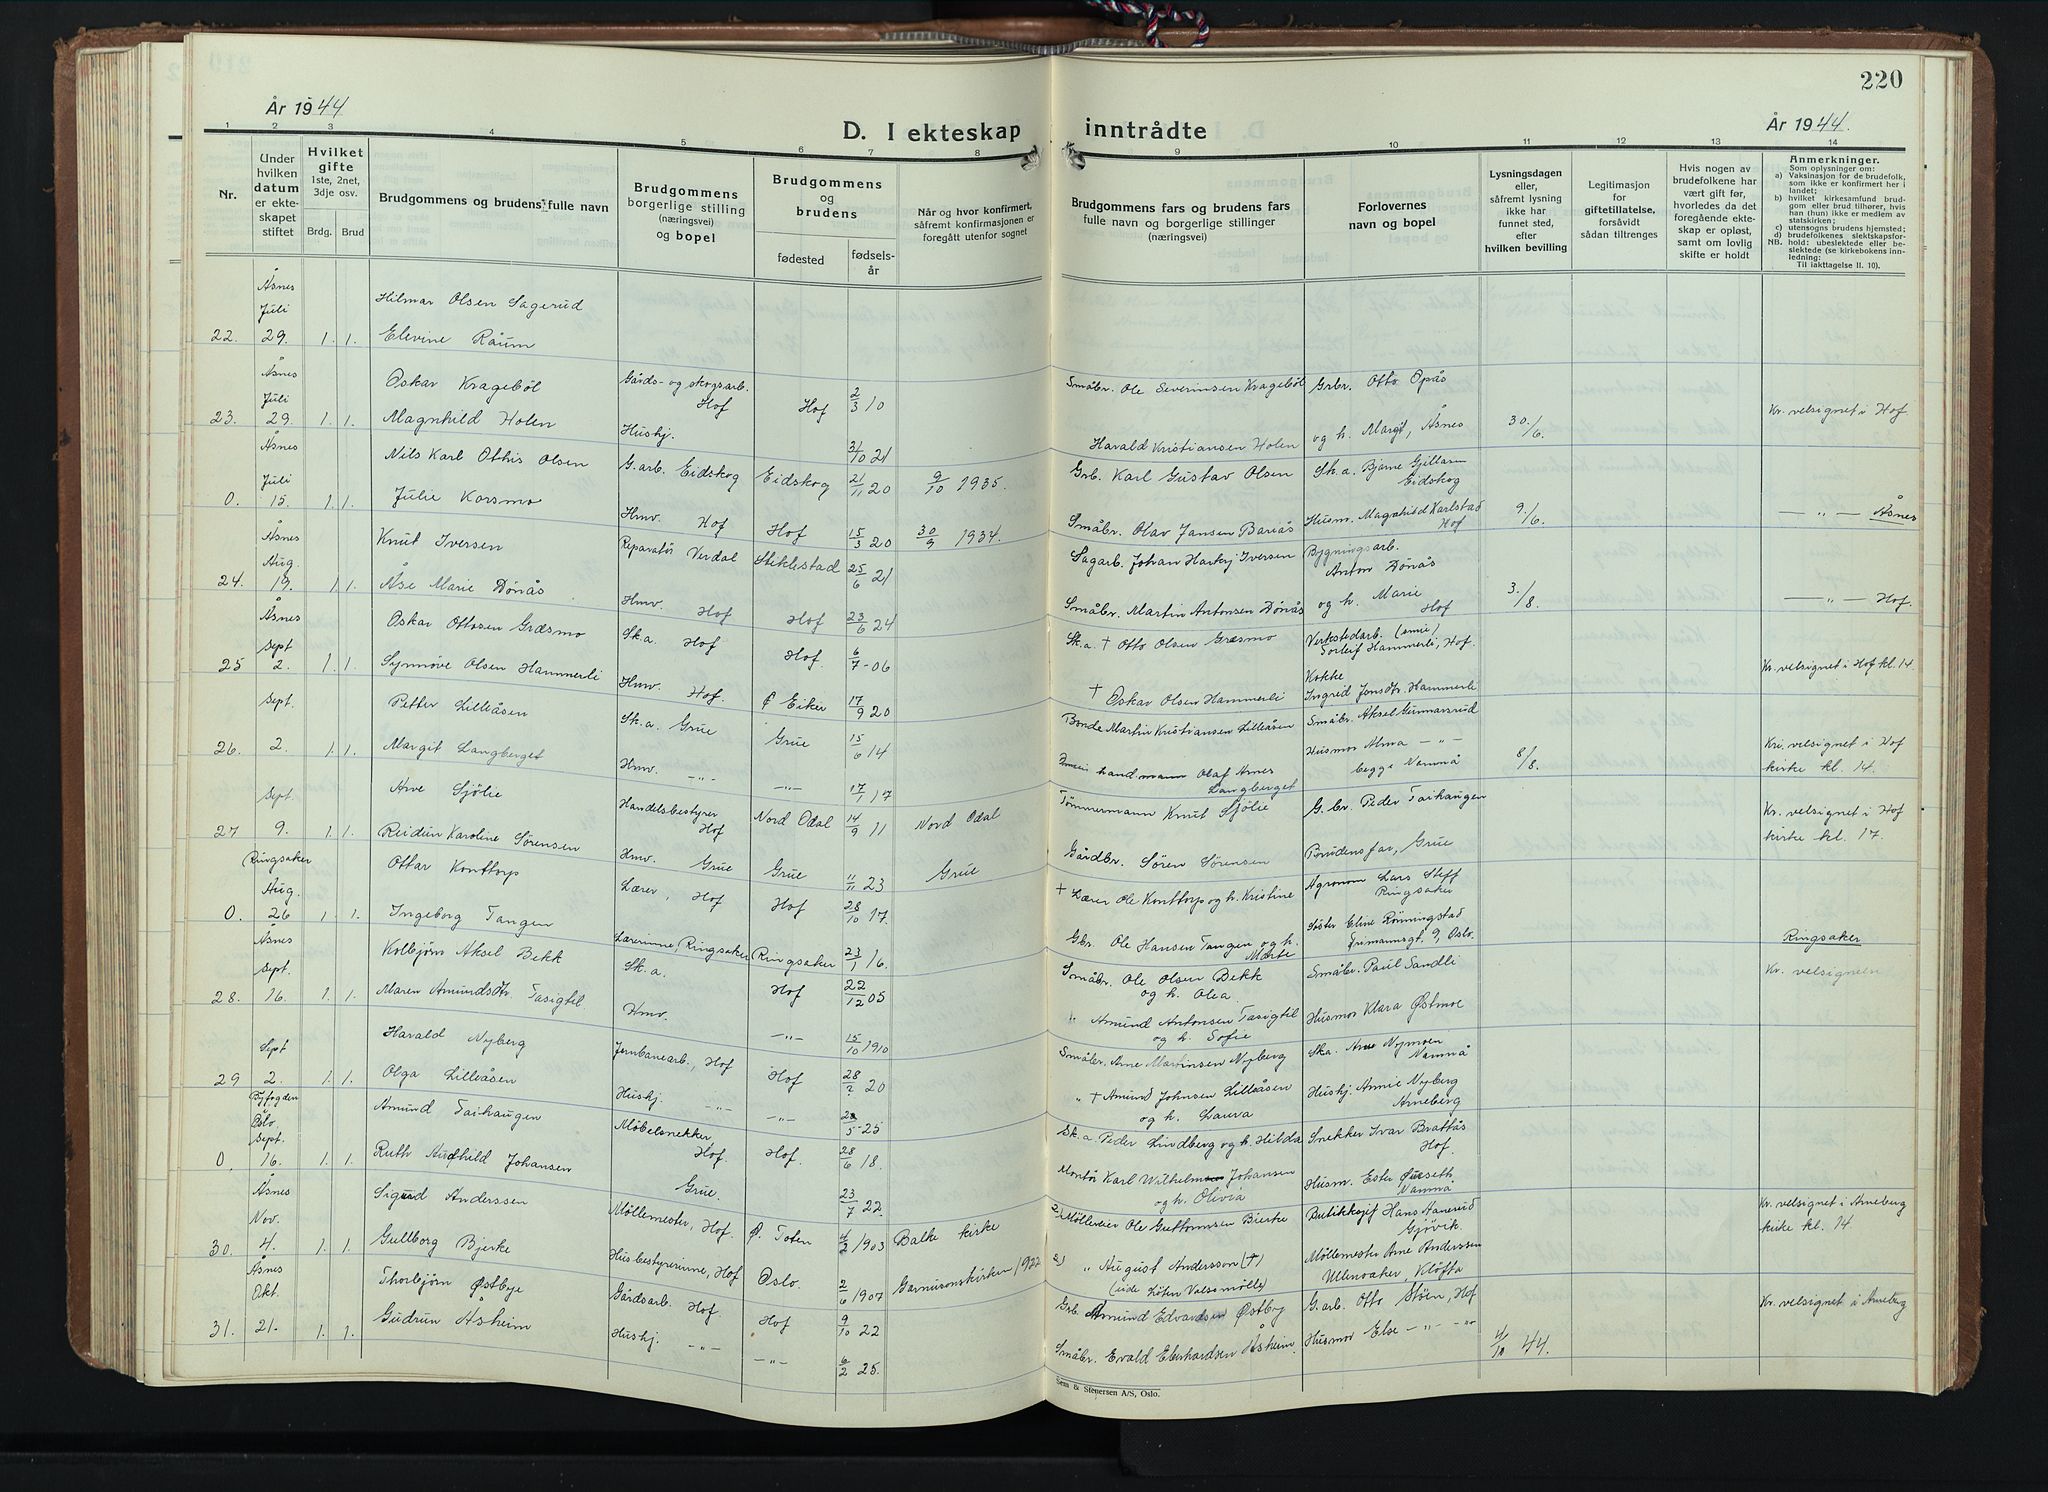 220
År 1944
År 1944.
D. I ekteskap inntrådte
1 2 3 4 5 6 7 8 9 10 11 12 13 14
Nr.
Under hvilken datum er ekteskapet stiftet
Hvilket gifte 1ste, 2net, 3dje osv.
Brdg. Brud
Brudgommens og brudens fulle navn
Brudgommens borgerlige stilling (næringsvei) og bopel
Brudgommens og brudens
fødested
fødselsår
Når og hvor konfirmert, såfremt konfirmasjonen er foregått utenfor sognet
Brudgommens fars og brudens fars fulle navn og borgerlige stillinger (næringsvei)
Forlovernes navn og bopel
Lysningsdagen eller, såfremt lysning ikke har funnet sted, efter hvilken bevilling
Legitimasjon for giftetillatelse, forsåvidt sådan tiltrenges
Hvis nogen av brudefolkene har vært gift før, hvorledes da det foregående ekteskap er opløst, samt om lovlig skifte er holdt
Anmerkninger.
Som oplysninger om:
a) Vaksinasjon for de brudefolk, som ikke er konfirmert her i landet;
b) hvilket kirkesamfund brudgom eller brud tilhører, hvis han (hun) ikke er medlem av statskirken;
c) utensogns brudens hjemsted;
d) brudefolkenes slektskapsforhold: ubeslektede eller beslektede (se kirkebokens innledning:
NB. Til iakttagelse II. 10).
Åsnes
Juli
Hilmar Olsen Sagerud
22. 29. 1. 1. Elevine Råum
Åsnes Oskar Kragebøl Gårds- og skogsarb. Hof Hof 2/3 10 Småbr. Ole Severinsen Kragebøl Grbr. Otto Opås
Juli
23. 29. 1. 1. Magnhild Holen Hushj. 31/10 21 Harald Kristiansen Holen og h. Margit, Åsnes 30/6. Kr. velsignet i Hof.
Åsnes Nils Karl Otthis Olsen G.arb. Eidskog Eidskog 21/11 20 9/10 1935. Grb. Karl Gustav Olsen Sk.a. Bjarne Gjillaren Eidskog
Juli
0. 15. 1. 1. Julie Korsmo Hmv. Hof Hof 15/3 20 30/9 1934. Småbr. Olav Jansen Barås Husm. Magnhild Karlstad Hof 9/6. — " — Åsnes
Åsnes Knut Iversen Reparatør Verdal Stiklestad 25/6 21 Sagarb. Johan Iversen Bygningsarb. Anton Dønås
Aug.
24. 19. 1. 1. Åse Marie Dønås Hmv. Hof Hof 23/6 24 Småbr. Martin Antonsen Dønås og h. Marie Hof 3/8. — " — Hof.
Åsnes Oskar Ottosen Græsmo Sk.a. Hof Hof. 6/7-06 Sk.a. † Otto Olsen Græsmo Verkstedarb. Torleif Hammerli, Hof.
Sept
25 2. 1. 1. Synnøve Olsen Hammerli Hmv. Hof. Ø Eiker 17/9 20 † Oskar Olsen Hammerli Kokke Ingrid Jonsdtr. Hammerli Kr. velsignet i Hof kl. 14
Sept. Petter Lilleåsen Sk.a. Grue Grue 15/6 14 Bonde Martin Kristiansen Lilleåsen Småbr. Aksel Gunnarsrud
26. 2. 1. 1. Margit Langberget Hmv. -"- -"- 17/1 17 Olaf Arnes Langberget Husmor Alma — " — begge Namnå 8/8. Kr. velsignet i Hof kirke kl. 14.
Sept. Arve Sjølie Handelsbestyrer Hof Nord Odal 14/9 11 Nord Odal Tømmermann Knut Sjølie G.br. Peder Taihaugen
27 9. 1. 1. Reidun Karoline Sørensen Hmv. Grue Grue 11/11 23 Grue Gårdbr. Søren Sørensen Brudens far, Grue Kr. velsignet i Hof kirke kl. 17.
Ringsaker Ottar Konttorp Lærer, Hof Hof 28/10 17. † Lærer Ole Konttorp og h. Kristine Agronom Lars Steff Ringsaker
Aug.
0. 26 1. 1. Ingeborg Tangen Lærerinne, Ringsaker Ringsaker 23/1 16. Gbr. Ole Hansen Tangen og h. Marte Søster Eline Rønningstad 9, Oslo. Ringsaker
Åsnes Kolbjørn Aksel Bekk Sk.a. Hof 22/12 05 Småbr. Ole Olsen Bekk og h. Olea. Småbr. Paul Sandli Kr. velsignen
Sept.
28. 16. 1. 1. Maren Amundsdtr. Tasigtil Hmv. -"- 15/10 1910 " Amund Antonsen Tasigtil og h. Sofie Husmor Klara Østmoe
Sept Harald Nyberg Jernbanearb., Hof Hof 28/2 20 Småbr. Arne Martinsen Nyberg Ska. Arne Nymoen Namnå
29 2. 1. 1. Olga Lilleåsen Hushj. -"- -"- 5-25 " † Amund Johnsen Lilleåsen og h. Laura Hushj. Annie Nyberg Arneberg
Byfogden Oslo Amund Taihaugen Møbelsnekker, Hof. Hof. 28/6 18. Sk.a. Peder Lindberg og h. Hilda Snekker Ivar Bråtås Hof.
Sept.
0. 16. 1. 1. Ruth Audhild Johansen Grue. 23/7 22. Montør Karl Wilhelm Johansen og h. Olivia Husm. Ester Namnå
Åsnes Sigurd Anderssen Møllemester, Hof. Ø. Toten 4/2 1903 Balke kirke Mølleeier Ole Guttormsen Bjerke Butikksjef Hans Aanerud Gjøvik.
Nov.
30. 4. 1. 1. Gullborg Bjerke Husbestyrerinne, Hof Oslo. 2/6 1907 Garnisonskirken 1922 2) " August Andersson (†) (Løten Valsemølle) Møllemester Arne Anderssen Ullensaker, Kløfta Kr. velsignet i Arneberg kirke kl. 14.
Åsnes Thorbjørn Østbye Gårdsarb. Hof. Hof 9/10 22 Grb. Amund Edvardsen Østby G.arb. Otto Støen, Hof
Okt.
31. 21. 1. 1. Gudrun Åsheim Hushj. -"- -"- 6/2 25. Småbr. Evald Eberhardsen Åsheim. Husmor Else — " — 4/10 44. Kr. velsignet i Arneberg
Sem & Stenersen A/S, Oslo.